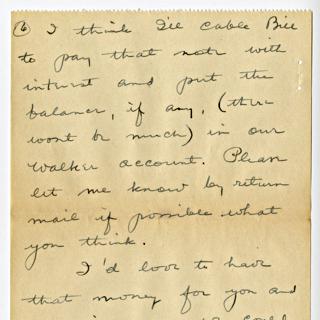 (6) I think I'll cable Bill
to pay that note with
interest and put the
balance, if any, (there
wont be much) in our
Walker account. Please
let me know by return
mail if possible what
you think.
I'd love to have
that money for you and
could